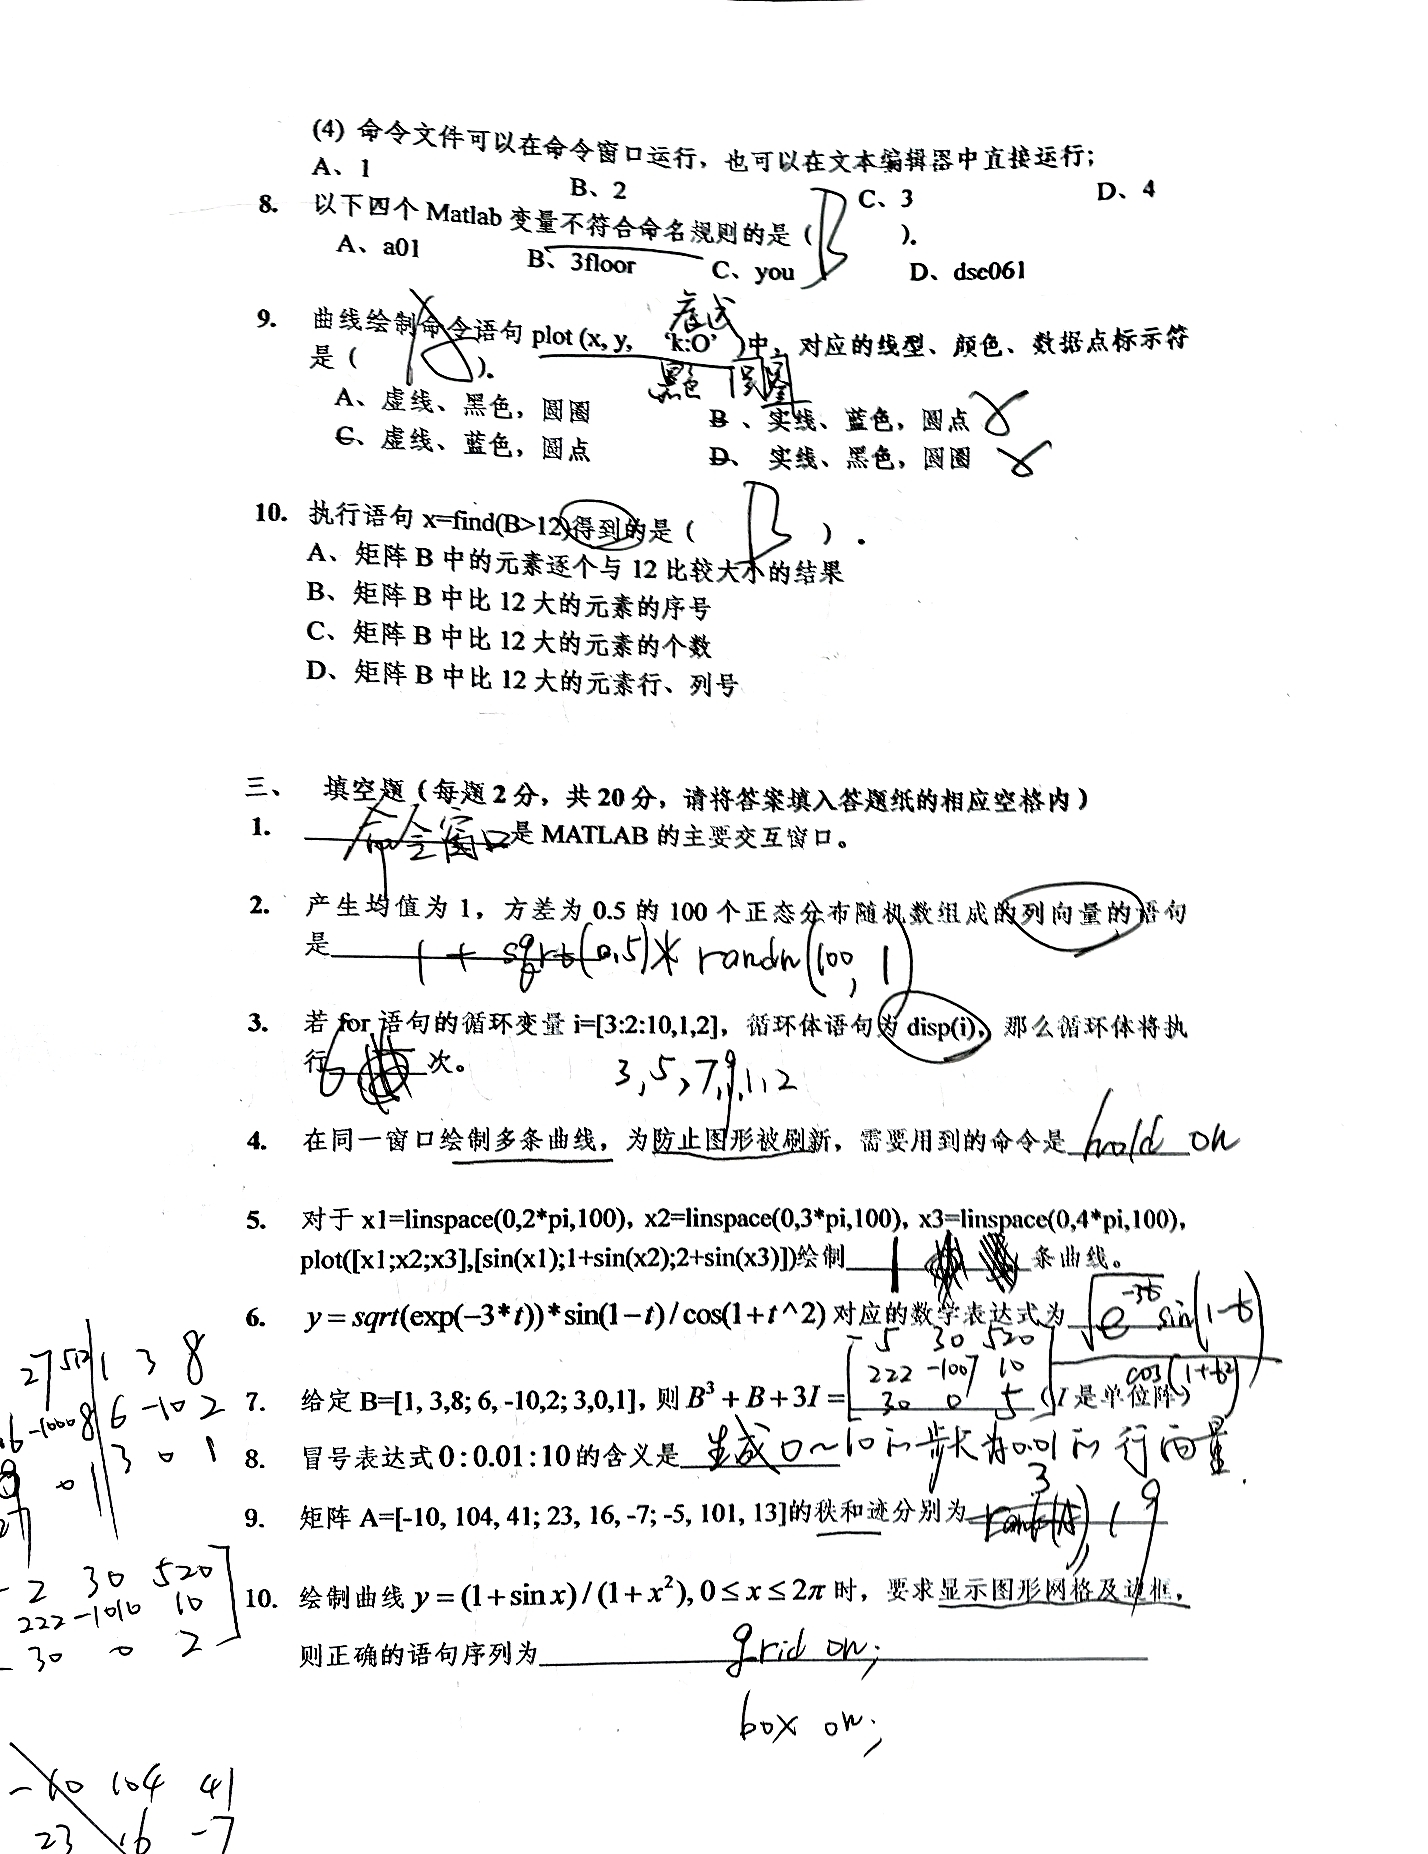 (4) 命令文件可以在命令窗口运行，也可以在文本编辑器中直接运行；
A、1 B、2 C、3 D、4
8. 以下四个 Matlab 变量不符合命名规则的是（ B ）。
A、a01 B、3floor C、you D、dsc061
9. 曲线绘制命令语句 plot (x, y, 'k:O' )中，对应的线型、颜色、数据点标示符
是（ A ）。
黑色
A、虚线、黑色，圆圈 B 、实线、蓝色，圆点
C、虚线、蓝色，圆点 D、 实线、黑色，圆圈
10. 执行语句 x=find(B>12)得到的是（ B ）.
A、矩阵 B 中的元素逐个与 12 比较大小的结果
B、矩阵 B 中比 12 大的元素的序号
C、矩阵 B 中比 12 大的元素的个数
D、矩阵 B 中比 12 大的元素行、列号
三、 填空题（每题 2 分，共 20 分，请将答案填入答题纸的相应空格内）
1. 命令窗口是 MATLAB 的主要交互窗口。
2. 产生均值为 1，方差为 0.5 的 100 个正态分布随机数组成的列向量的语句
是 1 + sqrt(0.5)* randn(100, 1)
3. 若 for 语句的循环变量 i=[3:2:10,1,2]，循环体语句为 disp(i)，那么循环体将执
行 6 次。 3,5,7,9,1,2
4. 在同一窗口绘制多条曲线，为防止图形被刷新，需要用到的命令是 hold on
5. 对于 x1=linspace(0,2*pi,100)，x2=linspace(0,3*pi,100)，x3=linspace(0,4*pi,100)，
plot([x1;x2;x3],[sin(x1);1+sin(x2);2+sin(x3)])绘制 1 条曲线。
6. y = sqrt(exp(−3*t))*sin(1−t)/cos(1+t^2) 对应的数学表达式为 √e^-3t sin(1-t)
cos(1+t²)
-5 30 520
222 -1007 10
30 0 5
7. 给定 B=[1, 3,8; 6, -10,2; 3,0,1]，则 B³ + B + 3I = （I 是单位阵）
8. 冒号表达式 0 : 0.01 : 10 的含义是 生成0~10的步长为0.01的行向量.
9. 矩阵 A=[-10, 104, 41; 23, 16, -7; -5, 101, 13]的秩和迹分别为 3, 19
10. 绘制曲线 y = (1 + sin x) / (1 + x²), 0 ≤ x ≤ 2π 时，要求显示图形网格及边框，
则正确的语句序列为 grid on;
box on;
27 512 1 3 8
-1000 8 6 -10 2
0 1 3 0 1
- 2 30 520
222 -1010 10
- 30 0 2
-10 104 41
23 16 -7